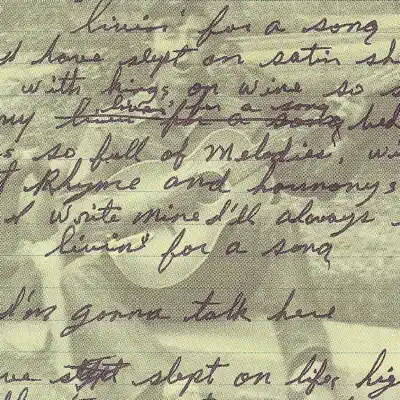 livin' for a song
have slept on satin sh
with kings on wine so s
my livin' for a song bed
so full of Melodies, wi
Rhyme and harmony s
I write mine I'll always
livin' for a song
I'm gonna talk here
ve slept on life, hig